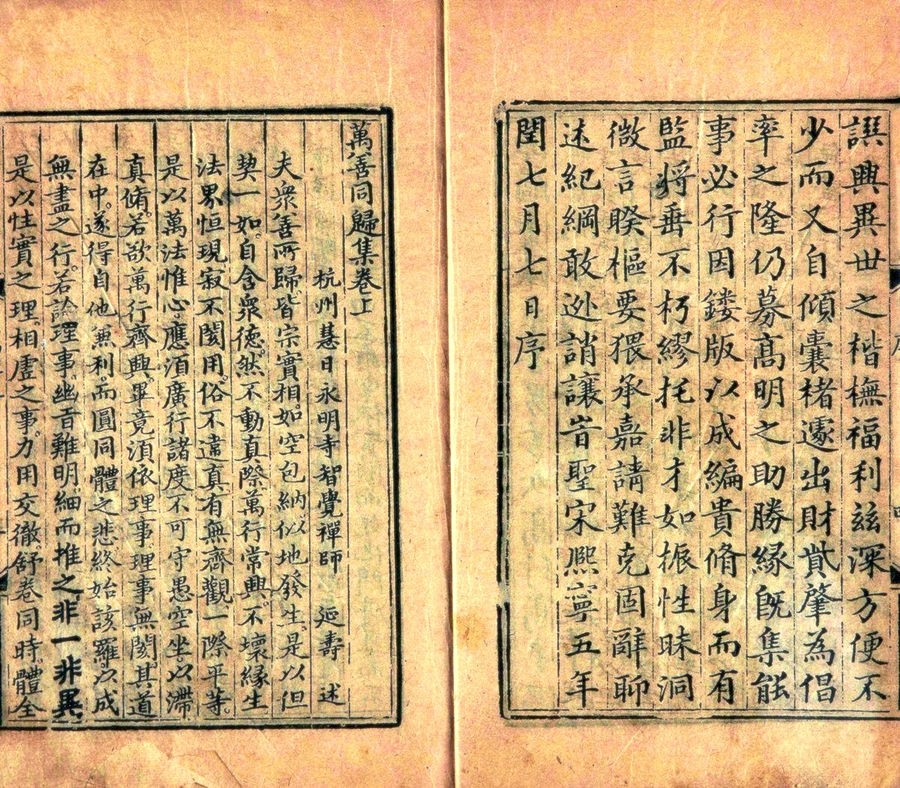 譔興異世之楷橅福利兹深方便不
少而又自傾囊楮遽出財貲肇為倡
率之隆仍募髙明之助勝緣旣集能
事必行因鏤版以成編貴脩身而有
監將垂不朽繆托非才如振性昧洞
微言睽樞要猥承嘉請難克固辭聊
述紀綱敢逊誚讓旹聖宋熈寧五年
閏七月七日序
萬善同歸集卷上
杭州慧日永明寺智覺禪師 延壽 述
夫衆善所歸皆宗實相如空包納似地發生是以但
契一如自含衆德然不動真際萬行常興不壞緣生
法界恒現寂不閡用俗不違真有無齊觀一際平等
是以萬法惟心應須廣行諸度不可守愚空坐以滯
真脩若欲萬行齊興畢竟須依理事理事無閡其道
在中遂得自他兼利而圓同體之悲終始該羅以成
無盡之行若論理事幽旨難明細而推之非一非異
是以性實之理相虛之事力用交徹舒卷同時體全